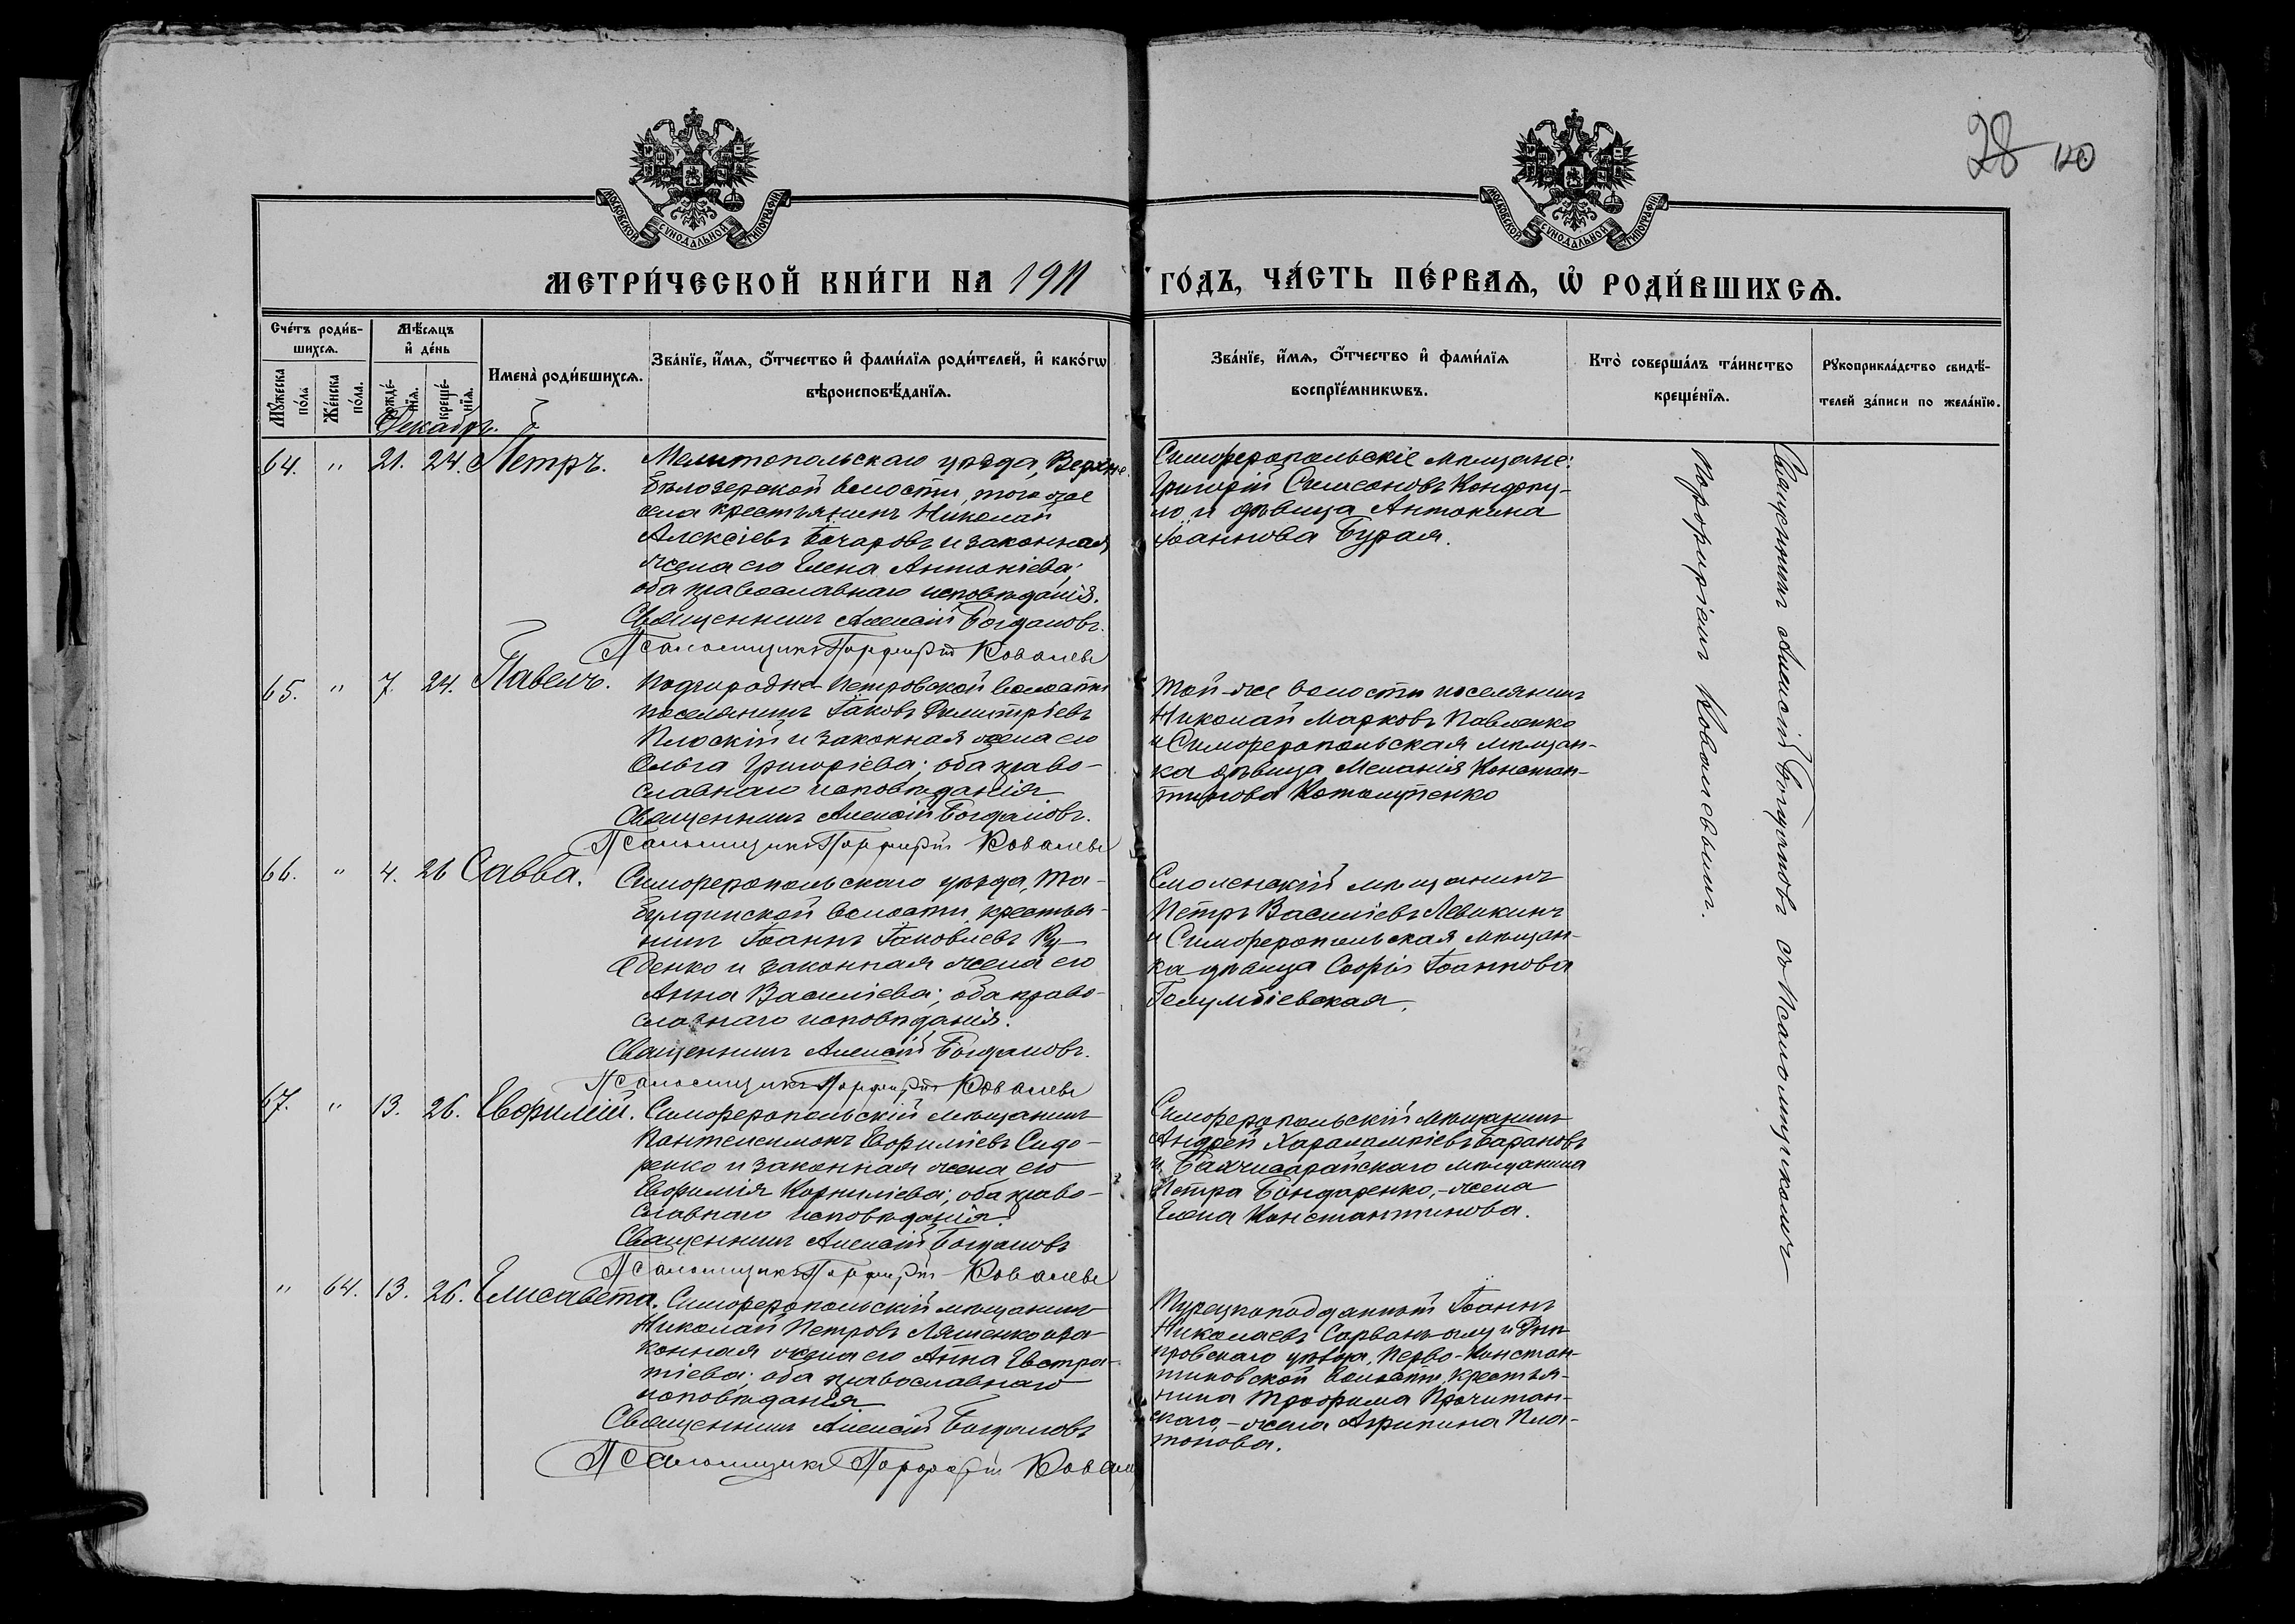 28 120
МОСКОВСКОЙ СѴНОДАЛЬНОЙ ТИПОГРАФІИ
МОСКОВСКОЙ СѴНОДАЛЬНОЙ ТИПОГРАФІИ
МЕТРИ́ЧЕСКОЙ КНИ́ГИ НА 1911 ГО́ДЪ, ЧА́СТЬ ПЕ́РВАѦ, Ѡ҆ РОДИ́ВШИХСѦ.
Сче́тъ роди́в-
шихсѧ.
Мꙋжеска по́ла
Же́нска по́ла.
Мѣ́сѧцъ
и҆ де́нь
рожде́-
нїѧ.
креще́-
нїѧ.
Имена̀ роди́вшихсѧ.
Зва́нїе, и҆́мѧ, ѻ҆́тчество и҆ фами́лїѧ роди́телей, и҆ како́гѡ
вѣроисповѣ́данїѧ.
Зва́нїе, и҆́мѧ, ѻ҆́тчество и҆ фами́лїѧ
воспрїе́мникѡвъ.
Кто̀ соверша́лъ та́инство
креще́нїѧ.
Рꙋкоприкла́дство свидѣ́-
телей за́писи по жела́нїю.
Декабрь.
64. " 21. 24. Петръ.
Мелитопольскаго уѣзда, Верхне-
бѣлозерской волости, того же
села крестьянинъ Николай
Алексіевъ Бочаровъ и законная
жена его Елена Антоніева;
оба православнаго исповѣданія.
Священникъ Алексій Богдановъ.
Псаломщикъ Порфирій Ковалевъ
Симферопольскіе мѣщане:
Григорій Симеоновъ Кондопу-
ло и дѣвица Антонина
Іоаннова Бурая.
65. " 7. 24. Павелъ.
Подгородне-Петровской волости
поселянинъ Іаковъ Димитріевъ
Плоскій и законная жена его
Ольга Григоріева; оба право-
славнаго исповѣданія
Священникъ Алексій Богдановъ.
Псаломщикъ Порфирій Ковалевъ
Той-же волости поселянинъ
Николай Марковъ Павленко
и Симферопольская мѣщан-
ка дѣвица Меланія Констан-
тинова
66. " 4. 26 Савва.
Симферопольскаго уѣзда, Та-
булдинской волости, крестья-
нинъ Іоаннъ Іаковлевъ Ру-
денко и законная жена его
Анна Василіева; оба право-
славнаго исповѣданія.
Священникъ Алексій Богдановъ.
Псаломщикъ Порфирій Ковалевъ
Смоленскій мѣщанинъ
Петръ Василіевъ Левикинъ
и Симферопольская мѣщан-
ка дѣвица Софія Іоаннова
67. " 13. 26. Евфимій.
Симферопольскій мѣщанинъ
Пантелеимонъ Евфиміевъ Сидо-
ренко и законная жена его
Евфимія Корниліева; оба право-
славнаго исповѣданія.
Священникъ Алексій Богдановъ
Псаломщикъ Порфирій Ковалевъ
Симферопольскій мѣщанинъ
Андрей Харалампіевъ Барановъ
и Бахчисарайскаго мѣщанина
Петра Бондаренко, - жена
Елена Константинова.
" 64. 13. 26. Елисавета.
Симферопольскій мѣщанинъ
Николай Петровъ Ляшенко и за-
конная жена его Анна Евстра-
тіева; оба православнаго
исповѣданія
Священникъ Алексій Богдановъ
Псаломщикъ Порфирій Ковалев
Турецкоподданный Іоаннъ
Николаевъ и Днѣ-
провскаго уѣзда, Перво-Констан-
тиновской волости, крестья-
нина Трофима Прочитан-
скаго, - жена Агрипина Пла-
тонова.
Священникъ Алексій Богдановъ съ Псаломщикомъ
Порфиріемъ Ковалевымъ.